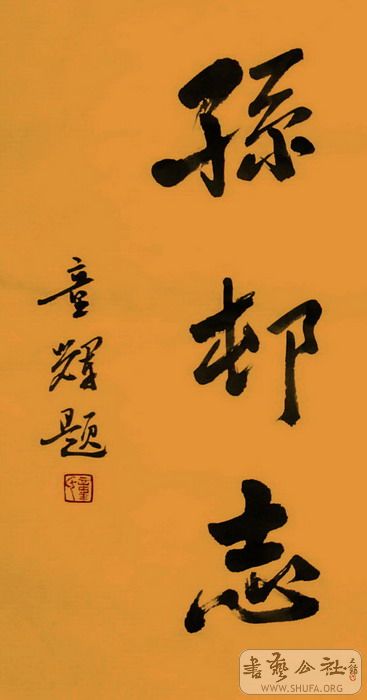 孫邨志
童輝題
書藝公社
WWW.SHUFA.ORG